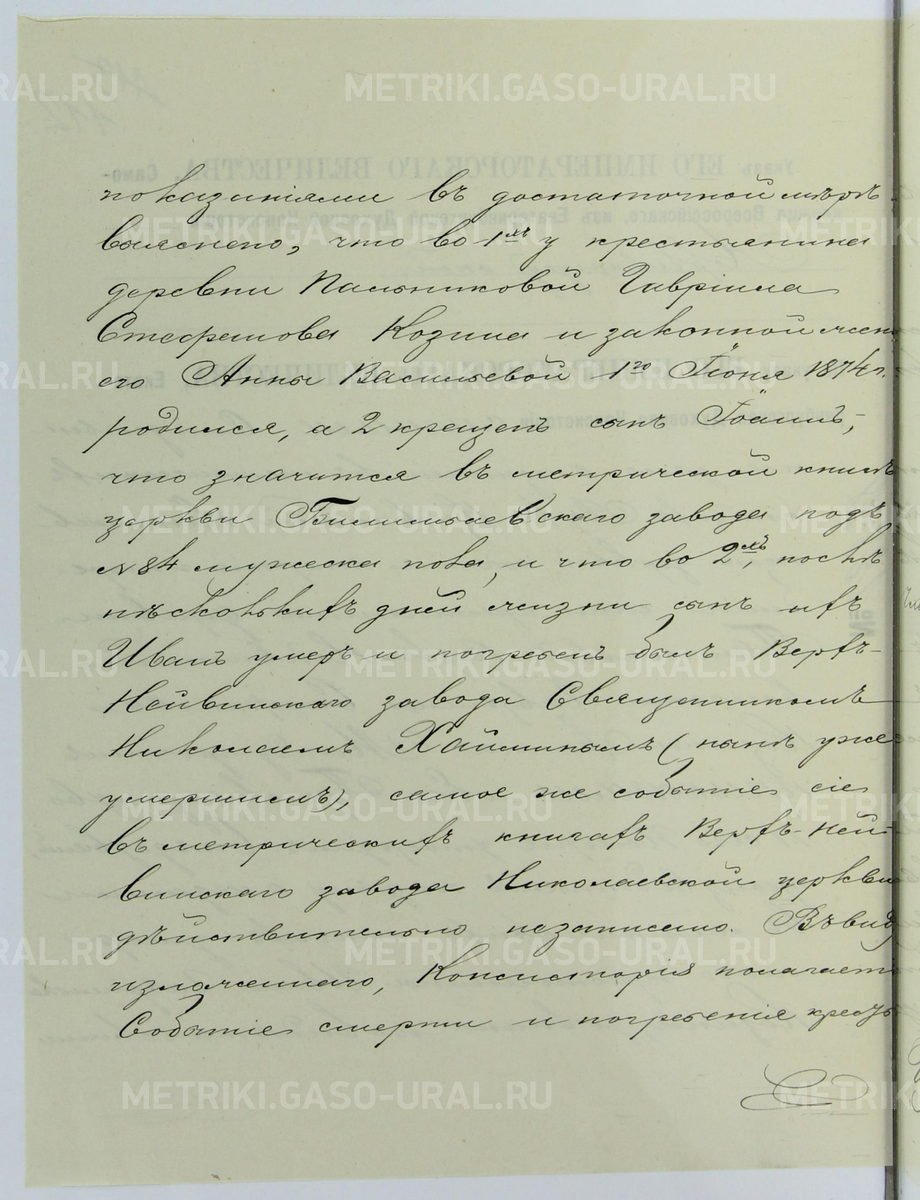 METRIKI.GASO-URAL.RU
показаніями въ достаточной мѣрѣ
выяснено, что во 1хъ у крестьянина
деревни Пальниковой Гавріила
Стефанова Козина и законной жены
его Анны Васильевой 1го Іюня 1874 г.
родился, а 2 крещенъ сынъ Іоаннъ,
что значится въ метрической книгѣ
церкви Билимбаевскаго завода подъ
№ 84 мужеска пола, и что во 2хъ, послѣ
нѣсколькихъ дней жизни сынъ ихъ
Иванъ умеръ и погребенъ былъ Верхъ-
Нейвинскаго завода Священникомъ
Николаемъ (нынѣ уже
умершимъ), самое же событіе сіе
въ метрическихъ книгахъ Верхъ-Ней-
винскаго завода Николаевской церкви
дѣйствительно незаписано. Въ виду
изложеннаго, Консисторія полагаетъ:
Событіе смерти и погребенія крестья